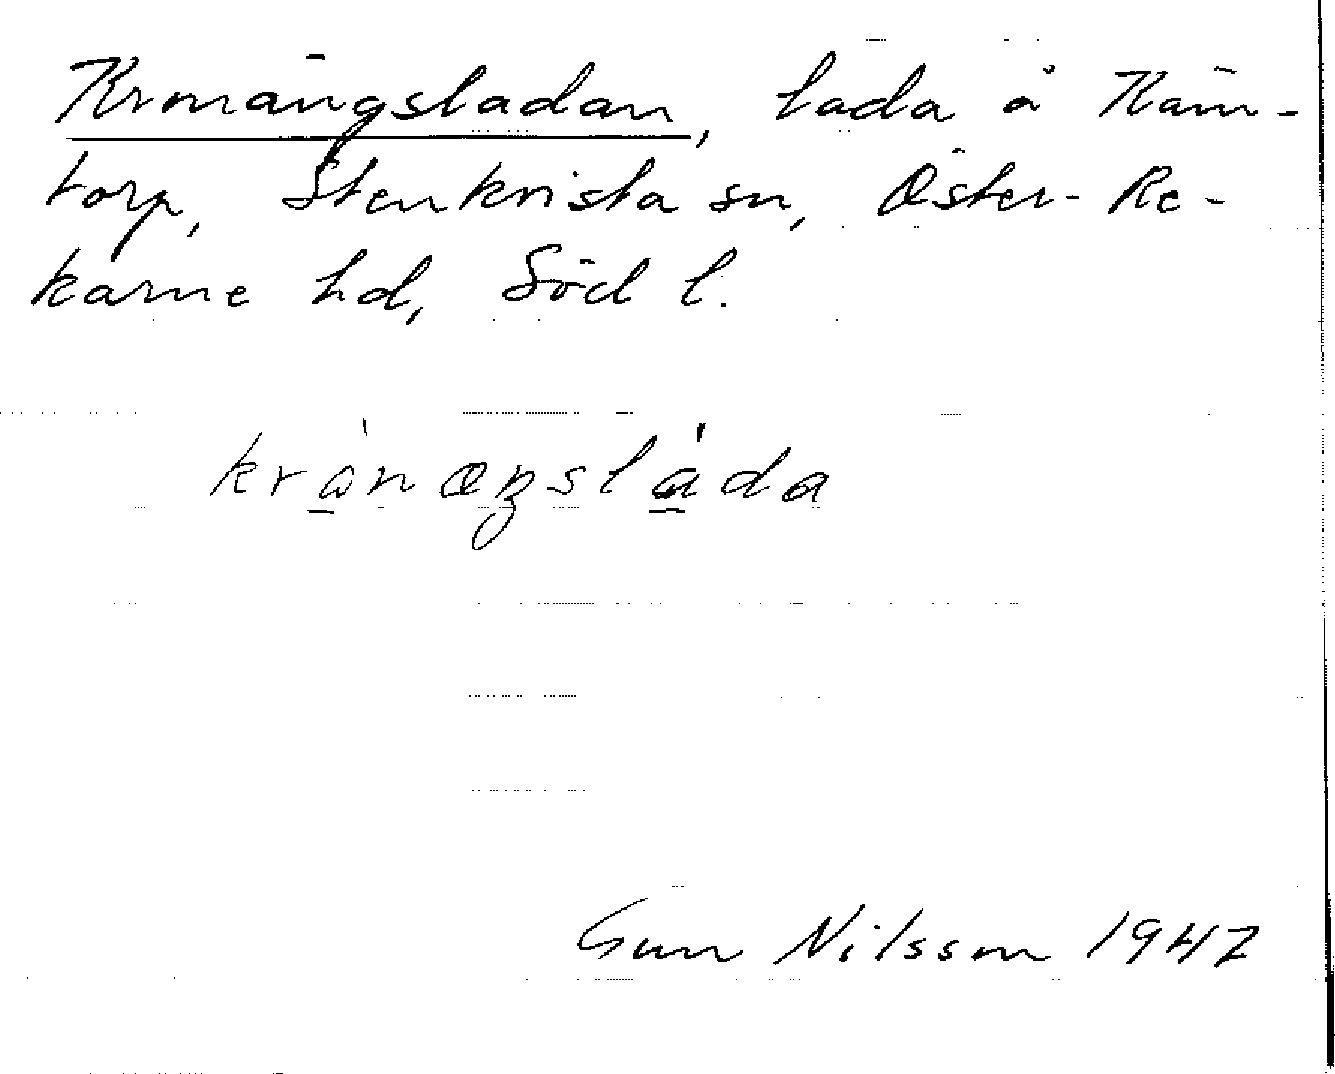 Kronängsladan, lada å Käm-
torp, Stenkvista sn, Öster-Re-
karne hd, Söd l.
krånæŋslada
Gun Nilsson 1947